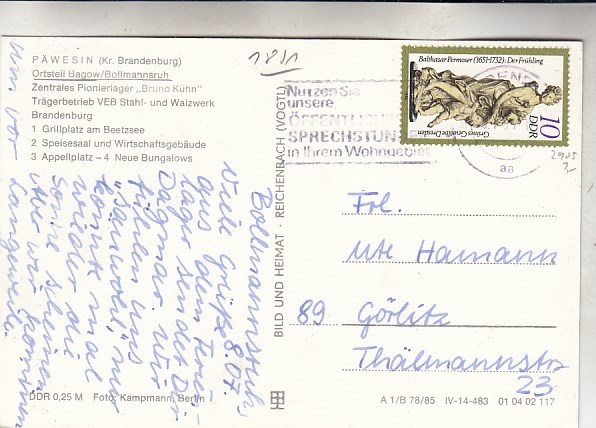 PÄWESIN (Kr. Brandenburg)
Ortsteil Bagow/Bollmannsruh
Zentrales Pionierlager „Bruno Kühn"
Trägerbetrieb VEB Stahl- und Walzwerk
Brandenburg
1 Grillplatz am Beetzsee
2 Speisesaal und Wirtschaftsgebäude
3 Appellplatz – 4 Neue Bungalows
1811
Bollmannsruh,
Viele Grüße 8.07.
aus dem Ferien-
lager sendet Dir
Dagmar. Wir
fühlen uns
"sauwohl", nur
könnte mal
wieder die
Sonne scheinen
Aber wir kommen
um vor
Langeweile.
BILD UND HEIMAT · REICHENBACH (VOGTL)
Nutzen Sie
unsere
ÖFFENTLICHE
SPRECHSTUNDE
in Ihrem Wohngebiet
aa
Balthasar Permoser (1651-1732): Der Frühling
Grünes Gewölbe Dresden
10
DDR
2905
Frl.
Ute Hamann
89 Görlitz
Thälmannstr
23
DDR 0,25 M Foto: Kampmann, Berlin
A 1/B 78/85 IV-14-483 01 04 02 117